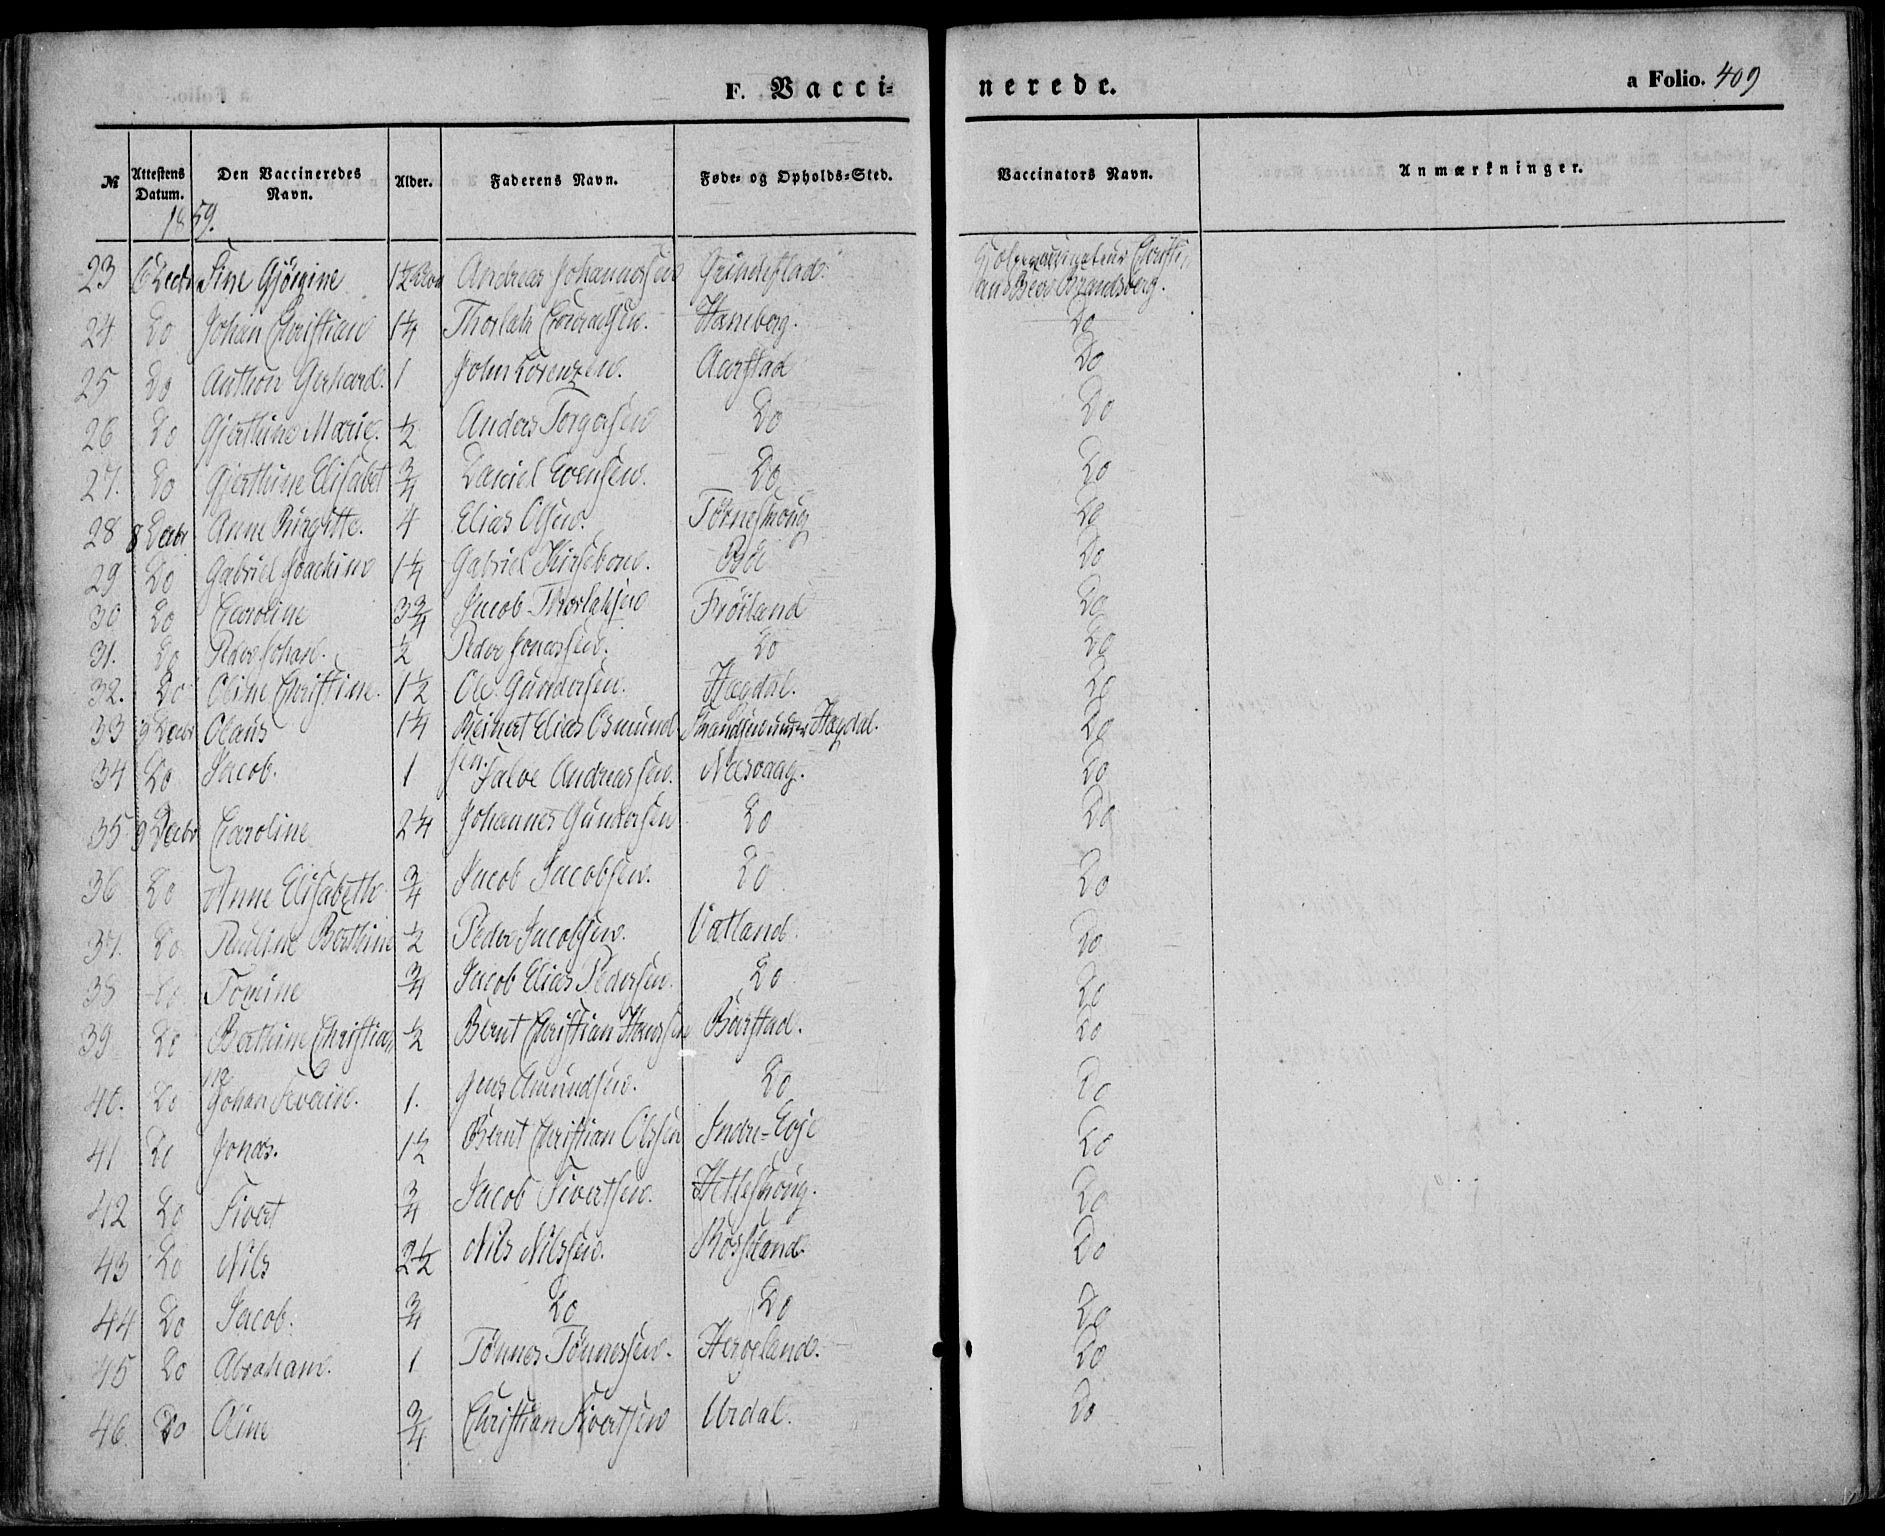 F. Vacci-
nerede.
a Folio. 409
№ Attestens Datum. Den Vaccineredes Navn. Alder. Faderens Navn. Føde- og Opholds-Sted. Vaccinators Navn. Anmærkninger.
1859.
23 6 Decbr Sine Gjørgine 1½ Andreas Johannessen Grindeflad. Christi
24 Do Johan Christian 1¼ Thorlak Conradsen. Haneberg. Do
25 Do Anthon Gerhard. 1 John Lorenzen. Aarstad Do
26 Do Gjerthine Marie. ½ Anders Torgersen Do Do
27. Do Gjerthine Elisabet ¾ Daniel Evensen. Do Do
28 8 Decbr. Anne Birgitte. 4 Elias Olsen. Do
29 Do Gabriel Joachim 1¼ Gabriel Kirsebom. Bøe Do
30 Do Caroline 3¾ Jacob Thorlaksen Frøiland Do
31. Do Peder Johan. ½ Peder Jonassen. Do Do
32. Do Oline Christine. 1½ Ole Gundersen. Hægdal. Do
33 9 Decbr Claus 1¼ Reinert Elias Osmund Strandsen under Hægdal. Do
sen.
34 Do Jacob. 1 Salve Andreassen. Næsvaag. Do
35 9 Decbr Caroline 2¼ Johannes Gundersen Do Do
36 Do Anne Elisabeth ¾ Jacob Jacobsen. Do Do
37. Do Pauline Berthine ½ Peder Jacobsen. Vatland. Do
38 Do Tomine ¾ Jacob Elias Pedersen. Do Do
39 Do Berthine Christia ½ Bernt Christian Hanssen Barstad. Do
na
40. Do Johan Severin. 1. Jens Amundsen. Do Do
41 Do Jonas. 1½ Bernt Christian Olssen Indre-Eoje Do
42 Do Sivert ¾ Jacob Sivertsen. Do
43 Do Nils 2½ Nils Nilssen. Røssland. Do
44 Do Jacob. ¾ Do Do Do
45 Do Abraham. 1 Tønnes Tønnessen. Hegeland. Do
46 Do Oline ¾ Christian Sivertsen Urdal. Do